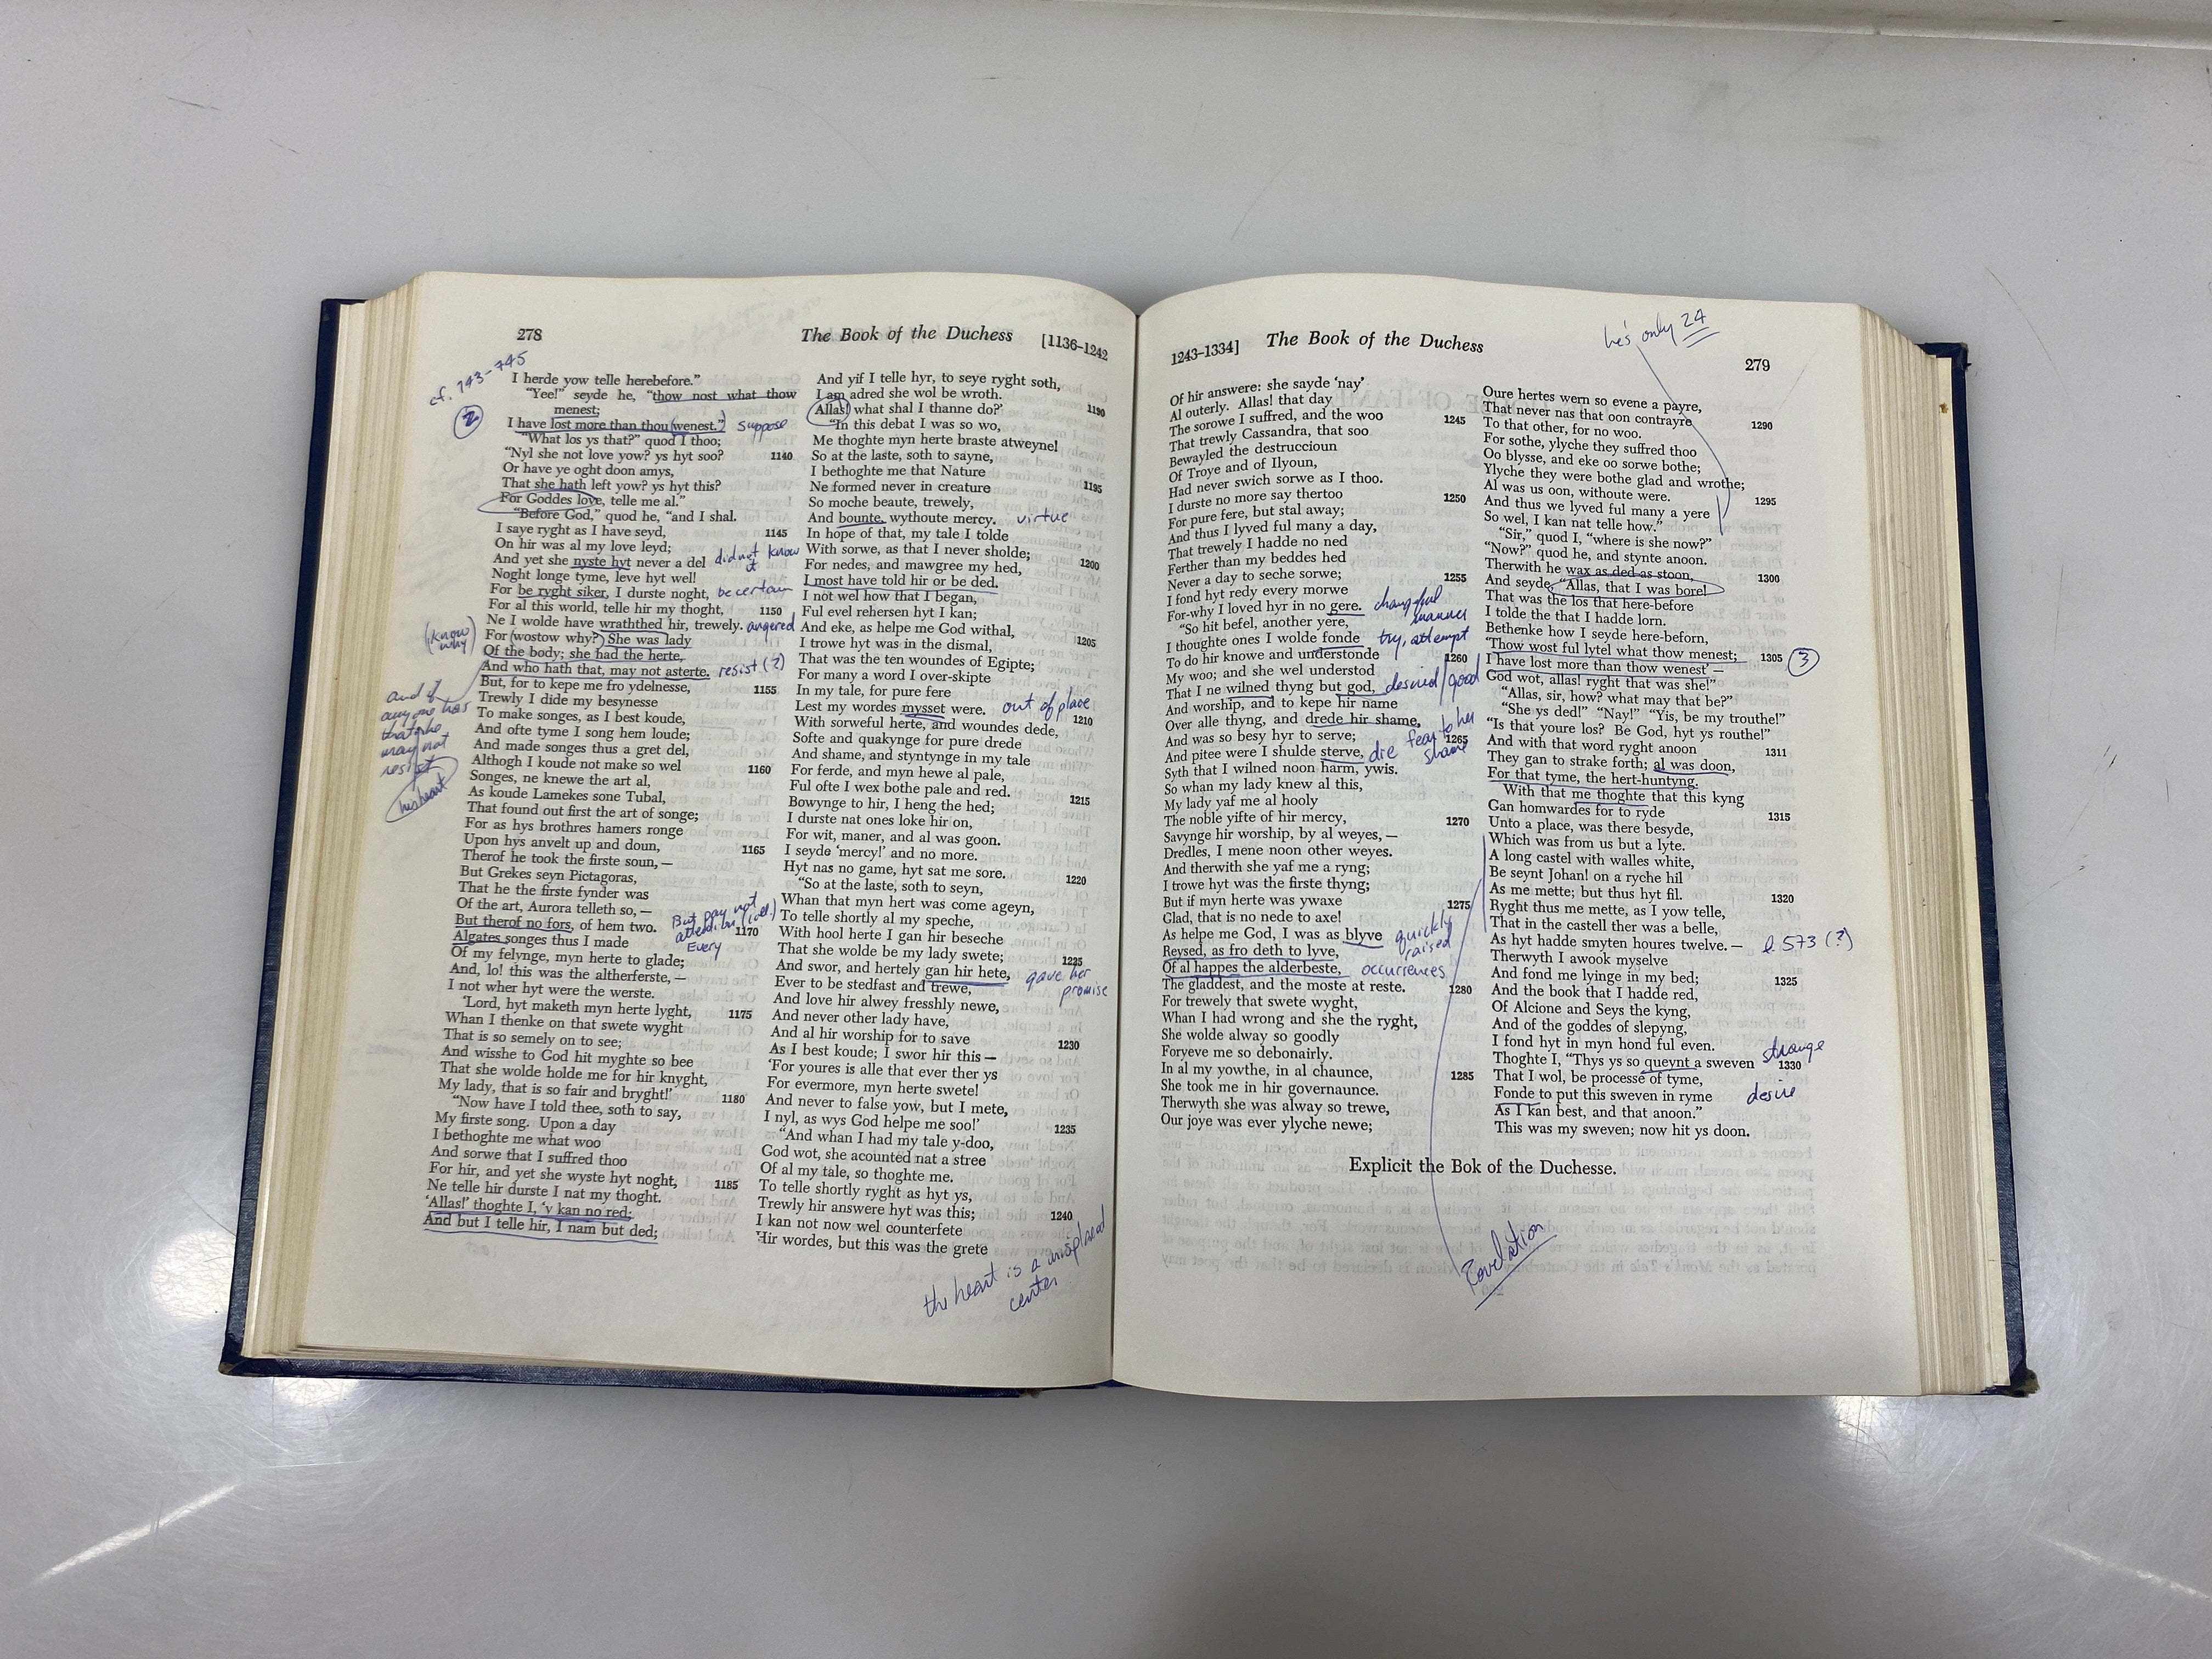 278
The Book of the Duchess
[1136-1242
cf. 743-745
2
I herde yow telle herebefore."
"Yee!" seyde he, "thow nost what thow
menest;
I have lost more than thou wenest." suppose
"What los ys that?" quod I thoo;
"Nyl she not love yow? ys hyt soo? 1140
Or have ye oght doon amys,
That she hath left yow? ys hyt this?
For Goddes love, telle me al."
"Before God," quod he, "and I shal.
I saye ryght as I have seyd, 1145
On hir was al my love leyd;
And yet she nyste hyt never a del did not know it
Noght longe tyme, leve hyt wel!
For be ryght siker, I durste noght, be certain
For al this world, telle hir my thoght, 1150
Ne I wolde have wraththed hir, trewely. angered
(know why)
For (wostow why?) She was lady
Of the body; she had the herte,
And who hath that, may not asterte. resist (?)
and if
anyone has
that, he
may not
resist
his heart
But, for to kepe me fro ydelnesse, 1155
Trewly I dide my besynesse
To make songes, as I best koude,
And ofte tyme I song hem loude;
And made songes thus a gret del,
Althogh I koude not make so wel 1160
Songes, ne knewe the art al,
As koude Lamekes sone Tubal,
That found out first the art of songe;
For as hys brothres hamers ronge
Upon hys anvelt up and doun, 1165
Therof he took the firste soun,—
But Grekes seyn Pictagoras,
That he the firste fynder was
Of the art, Aurora telleth so,—
But therof no fors, of hem two. 1170
But pay not
attention
Every
Algates songes thus I made
Of my felynge, myn herte to glade;
And, lo! this was the altherferste,—
I not wher hyt were the werste.
'Lord, hyt maketh myn herte lyght, 1175
Whan I thenke on that swete wyght
That is so semely on to see;
And wisshe to God hit myghte so bee
That she wolde holde me for hir knyght,
My lady, that is so fair and bryght!' 1180
"Now have I told thee, soth to say,
My firste song. Upon a day
I bethoghte me what woo
And sorwe that I suffred thoo
For hir, and yet she wyste hyt noght, 1185
Ne telle hir durste I nat my thoght.
'Allas!' thoghte I, 'y kan no red;
And but I telle hir, I nam but ded;
And yif I telle hyr, to seye ryght soth,
I am adred she wol be wroth. 1190
Allas! what shal I thanne do?'
"In this debat I was so wo,
Me thoghte myn herte braste atweyne!
So at the laste, soth to sayne,
I bethoghte me that Nature 1195
Ne formed never in creature
So moche beaute, trewely,
And bounte, wythoute mercy. virtue
In hope of that, my tale I tolde
With sorwe, as that I never sholde; 1200
For nedes, and mawgree my hed,
I most have told hir or be ded.
I not wel how that I began,
Ful evel rehersen hyt I kan;
And eke, as helpe me God withal, 1205
I trowe hyt was in the dismal,
That was the ten woundes of Egipte;
For many a word I over-skipte
In my tale, for pure fere
Lest my wordes mysset were. out of place 1210
With sorweful herte, and woundes dede,
Softe and quakynge for pure drede
And shame, and styntynge in my tale
For ferde, and myn hewe al pale,
Ful ofte I wex bothe pale and red. 1215
Bowynge to hir, I heng the hed;
I durste nat ones loke hir on,
For wit, maner, and al was goon.
I seyde 'mercy!' and no more.
Hyt nas no game, hyt sat me sore. 1220
"So at the laste, soth to seyn,
Whan that myn hert was come ageyn,
To telle shortly al my speche,
With hool herte I gan hir beseche
That she wolde be my lady swete; 1225
And swor, and hertely gan hir hete, gave her promise
Ever to be stedfast and trewe,
And love hir alwey fresshly newe,
And never other lady have,
And al hir worship for to save 1230
As I best koude; I swor hir this—
'For youres is alle that ever ther ys
For evermore, myn herte swete!
And never to false yow, but I mete,
I nyl, as wys God helpe me soo!' 1235
"And whan I had my tale y-doo,
God wot, she acounted nat a stree
Of al my tale, so thoghte me.
To telle shortly ryght as hyt ys,
Trewly hir answere hyt was this; 1240
I kan not now wel counterfete
Hir wordes, but this was the grete
the heart is a misplaced
center
1243-1334]
The Book of the Duchess
he's only 24
279
Of hir answere: she sayde 'nay'
Al outerly. Allas! that day
The sorowe I suffred, and the woo 1245
That trewly Cassandra, that soo
Bewayled the destruccioun
Of Troye and of Ilyoun,
Had never swich sorwe as I thoo.
I durste no more say thertoo 1250
For pure fere, but stal away;
And thus I lyved ful many a day,
That trewely I hadde no ned
Ferther than my beddes hed
Never a day to seche sorwe; 1255
I fond hyt redy every morwe
For-why I loved hyr in no gere. changeful manner
"So hit befel, another yere,
I thoughte ones I wolde fonde try, attempt
To do hir knowe and understonde 1260
My woo; and she wel understod
That I ne wilned thyng but god, desired/good
And worship, and to kepe hir name
Over alle thyng, and drede hir shame, fear to her shame
And was so besy hyr to serve; 1265
And pitee were I shulde sterve, die
Syth that I wilned noon harm, ywis.
So whan my lady knew al this,
My lady yaf me al hooly
The noble yifte of hir mercy, 1270
Savynge hir worship, by al weyes,—
Dredles, I mene noon other weyes.
And therwith she yaf me a ryng;
I trowe hyt was the firste thyng;
But if myn herte was ywaxe 1275
Glad, that is no nede to axe!
As helpe me God, I was as blyve quickly
Reysed, as fro deth to lyve, raised
Of al happes the alderbeste, occurrences
The gladdest, and the moste at reste. 1280
For trewely that swete wyght,
Whan I had wrong and she the ryght,
She wolde alway so goodly
Foryeve me so debonairly.
In al my yowthe, in al chaunce, 1285
She took me in hir governaunce.
Therwyth she was alway so trewe,
Our joye was ever ylyche newe;
Oure hertes wern so evene a payre,
That never nas that oon contrayre 1290
To that other, for no woo.
For sothe, ylyche they suffred thoo
Oo blysse, and eke oo sorwe bothe;
Ylyche they were bothe glad and wrothe;
Al was us oon, withoute were. 1295
And thus we lyved ful many a yere
So wel, I kan nat telle how."
"Sir," quod I, "where is she now?"
"Now?" quod he, and stynte anoon.
Therwith he wax as ded as stoon, 1300
And seyde, "Allas, that I was bore!
That was the los that here-before
I tolde the that I hadde lorn.
Bethenke how I seyde here-beforn,
'Thow wost ful lytel what thow menest; 1305 3
I have lost more than thow wenest'—
God wot, allas! ryght that was she!"
"Allas, sir, how? what may that be?"
"She ys ded!" "Nay!" "Yis, be my trouthe!"
"Is that youre los? Be God, hyt ys routhe!"
And with that word ryght anoon 1311
They gan to strake forth; al was doon,
For that tyme, the hert-huntyng.
With that me thoghte that this kyng
Gan homwardes for to ryde 1315
Unto a place, was there besyde,
Which was from us but a lyte.
A long castel with walles white,
Be seynt Johan! on a ryche hil
As me mette; but thus hyt fil. 1320
Ryght thus me mette, as I yow telle,
That in the castell ther was a belle,
As hyt hadde smyten houres twelve.— l. 573 (?)
Therwyth I awook myselve
And fond me lyinge in my bed; 1325
And the book that I hadde red,
Of Alcione and Seys the kyng,
And of the goddes of slepyng,
I fond hyt in myn hond ful even.
Thoghte I, "Thys ys so queynt a sweven strange 1330
That I wol, be processe of tyme,
Fonde to put this sweven in ryme desire
As I kan best, and that anoon."
This was my sweven; now hit ys doon.
Explicit the Bok of the Duchesse.
Revelation